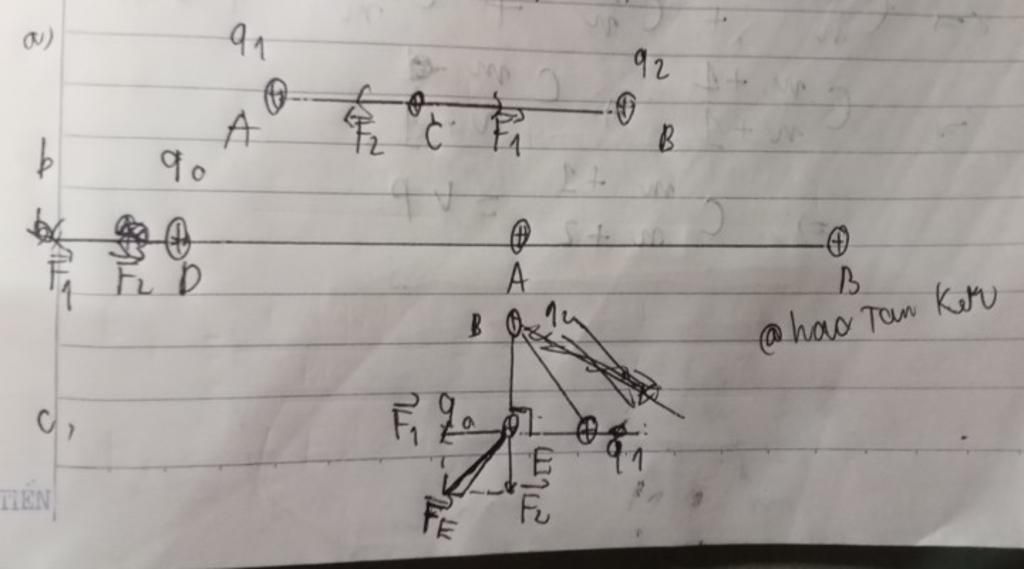 a)
q1
q2
A
F2
C
F1
B
b
q0
F1
F2
D
A
B
B
q2
@hao Tan Ken
c,
F1
q0
E
q1
FE
F2
TIẾN